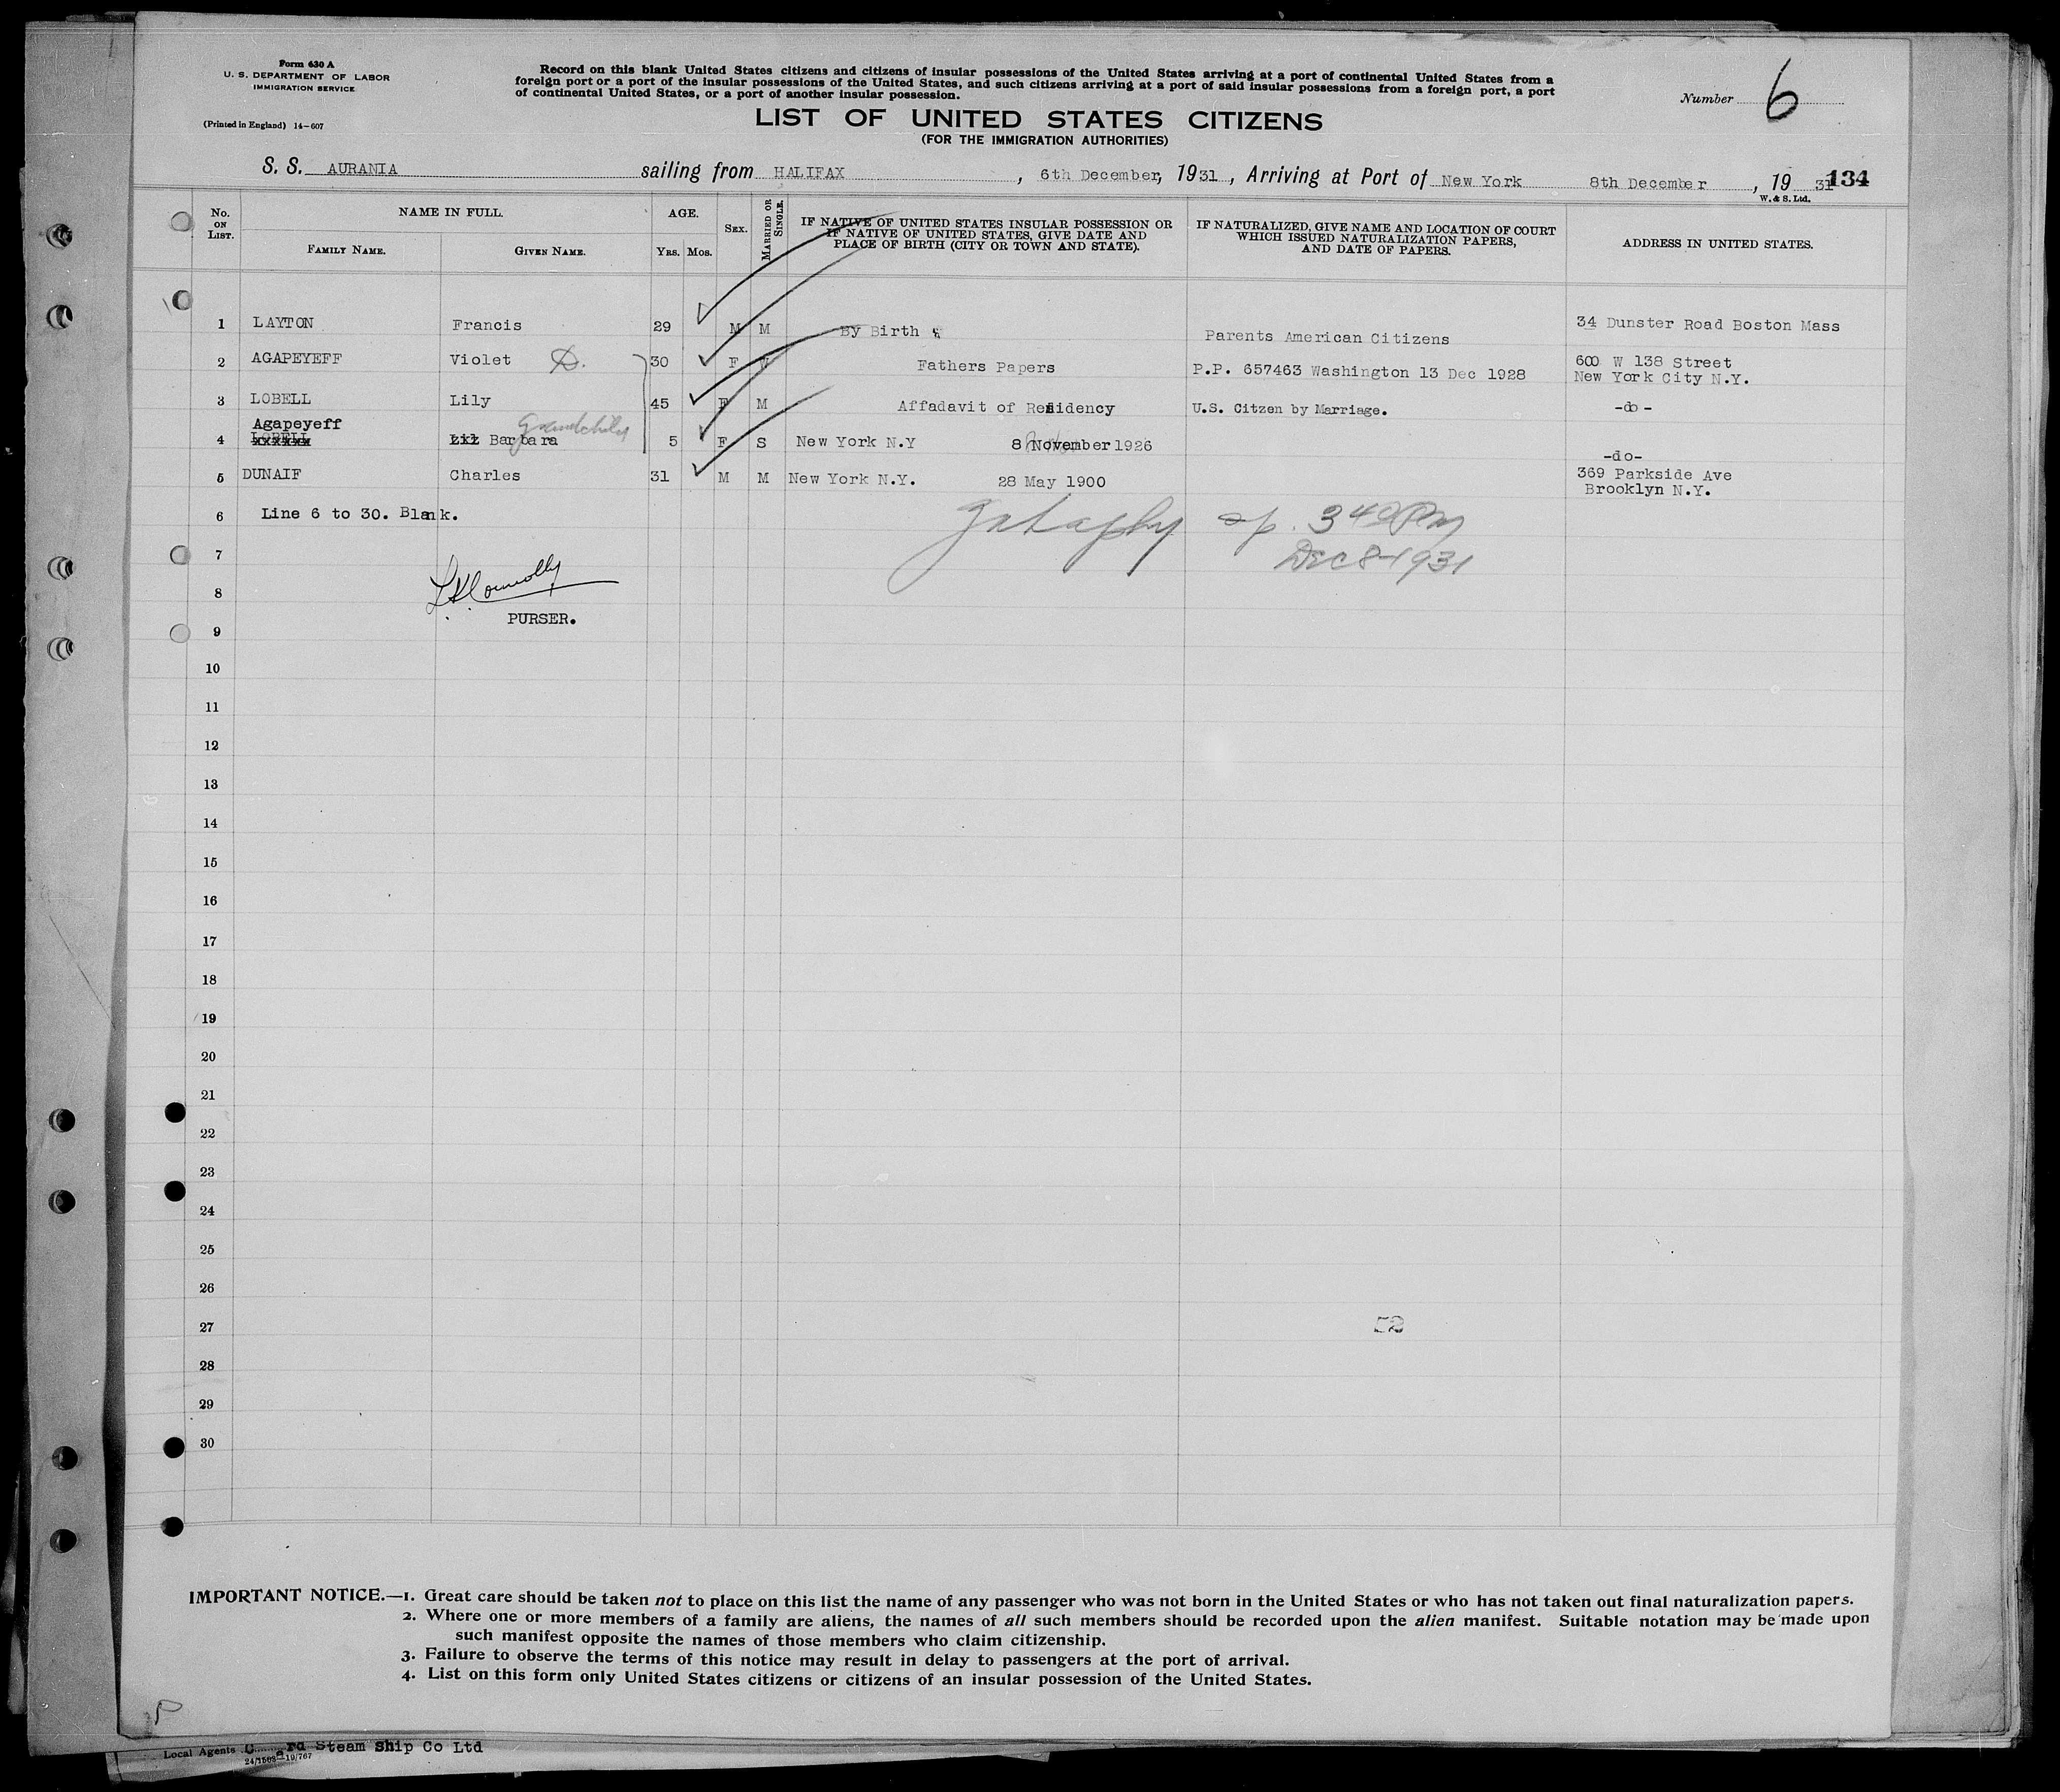 Form 630 A
U. S. DEPARTMENT OF LABOR
IMMIGRATION SERVICE
(Printed in England) 14-607
Record on this blank United States citizens and citizens of insular possessions of the United States arriving at a port of continental United States from a
foreign port or a port of the insular possessions of the United States, and such citizens arriving at a port of said insular possessions from a foreign port, a port
of continental United States, or a port of another insular possession.
Number 6
LIST OF UNITED STATES CITIZENS
(FOR THE IMMIGRATION AUTHORITIES)
S. S. AURANIA sailing from HALIFAX, 6th December, 1931, Arriving at Port of New York 8th December, 1931 134
W. & S. Ltd.
No. ON LIST.
NAME IN FULL.
FAMILY NAME. GIVEN NAME.
AGE.
YRS. MOS.
SEX.
MARRIED OR SINGLE.
IF NATIVE OF UNITED STATES INSULAR POSSESSION OR
IF NATIVE OF UNITED STATES, GIVE DATE AND
PLACE OF BIRTH (CITY OR TOWN AND STATE).
IF NATURALIZED, GIVE NAME AND LOCATION OF COURT
WHICH ISSUED NATURALIZATION PAPERS,
AND DATE OF PAPERS.
ADDRESS IN UNITED STATES.
1 LAYTON Francis 29 M M By Birth & Parents American Citizens 34 Dunster Road Boston Mass
2 AGAPEYEFF Violet D. 30 F Fathers Papers P.P. 657463 Washington 13 Dec 1928 600 W 138 Street
New York City N.Y.
3 LOBELL Lily 45 F M Affadavit of Residency U.S. Citzen by Marriage. -do-
Agapeyeff Grandchild
4 LOBELL Barbara 5 F S New York N.Y 8 November 1926 -do-
5 DUNAIF Charles 31 M M New York N.Y. 28 May 1900 369 Parkside Ave
Brooklyn N.Y.
6 Line 6 to 30. Blank.
3 40 PM
7
Dec 8-1931
8
PURSER.
9
10
11
12
13
14
15
16
17
18
19
20
21
22
23
24
25
26
27 52
28
29
30
IMPORTANT NOTICE.—1. Great care should be taken not to place on this list the name of any passenger who was not born in the United States or who has not taken out final naturalization papers.
2. Where one or more members of a family are aliens, the names of all such members should be recorded upon the alien manifest. Suitable notation may be made upon
such manifest opposite the names of those members who claim citizenship.
3. Failure to observe the terms of this notice may result in delay to passengers at the port of arrival.
4. List on this form only United States citizens or citizens of an insular possession of the United States.
Local Agents Steam Ship Co Ltd